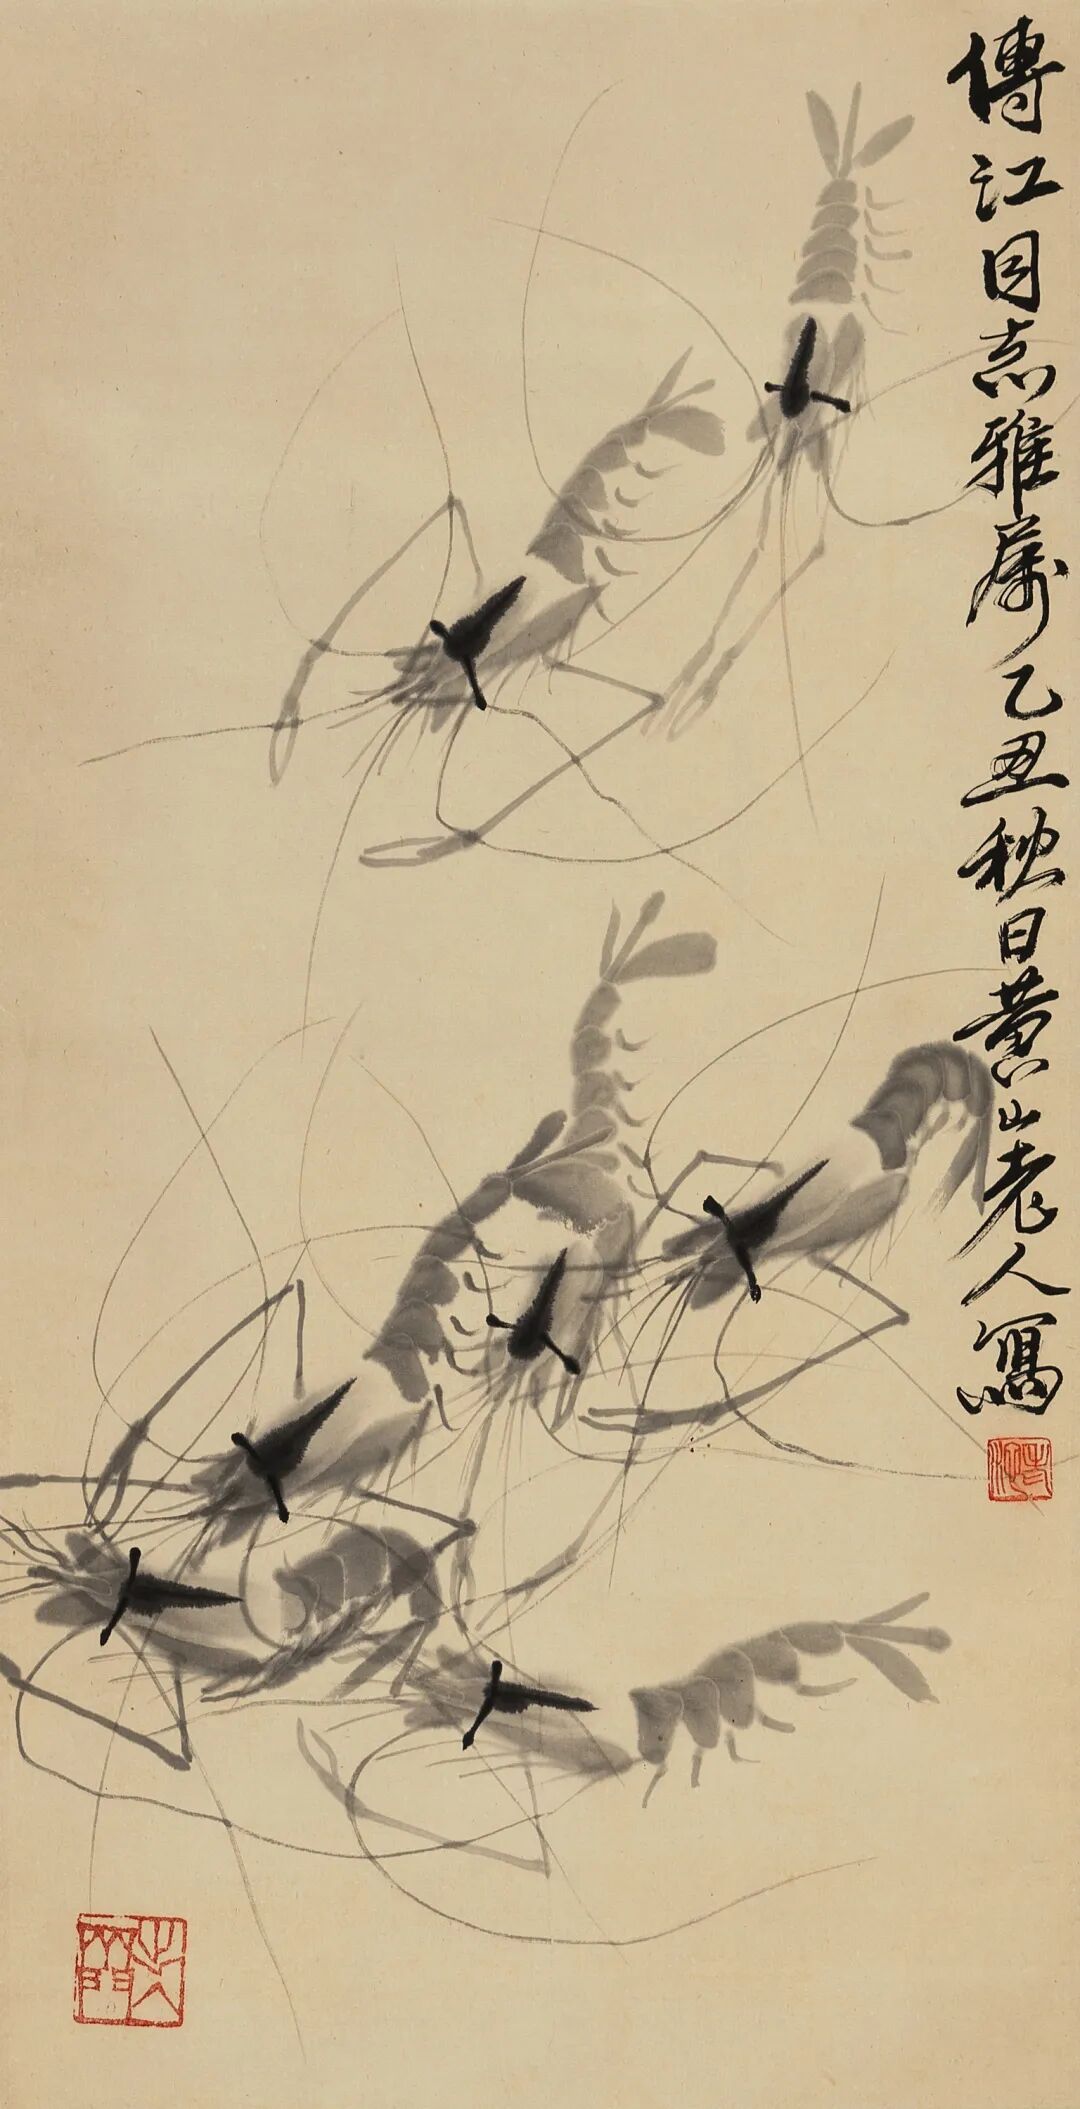 傳江同志雅屬乙丑秋日黄山老人寫